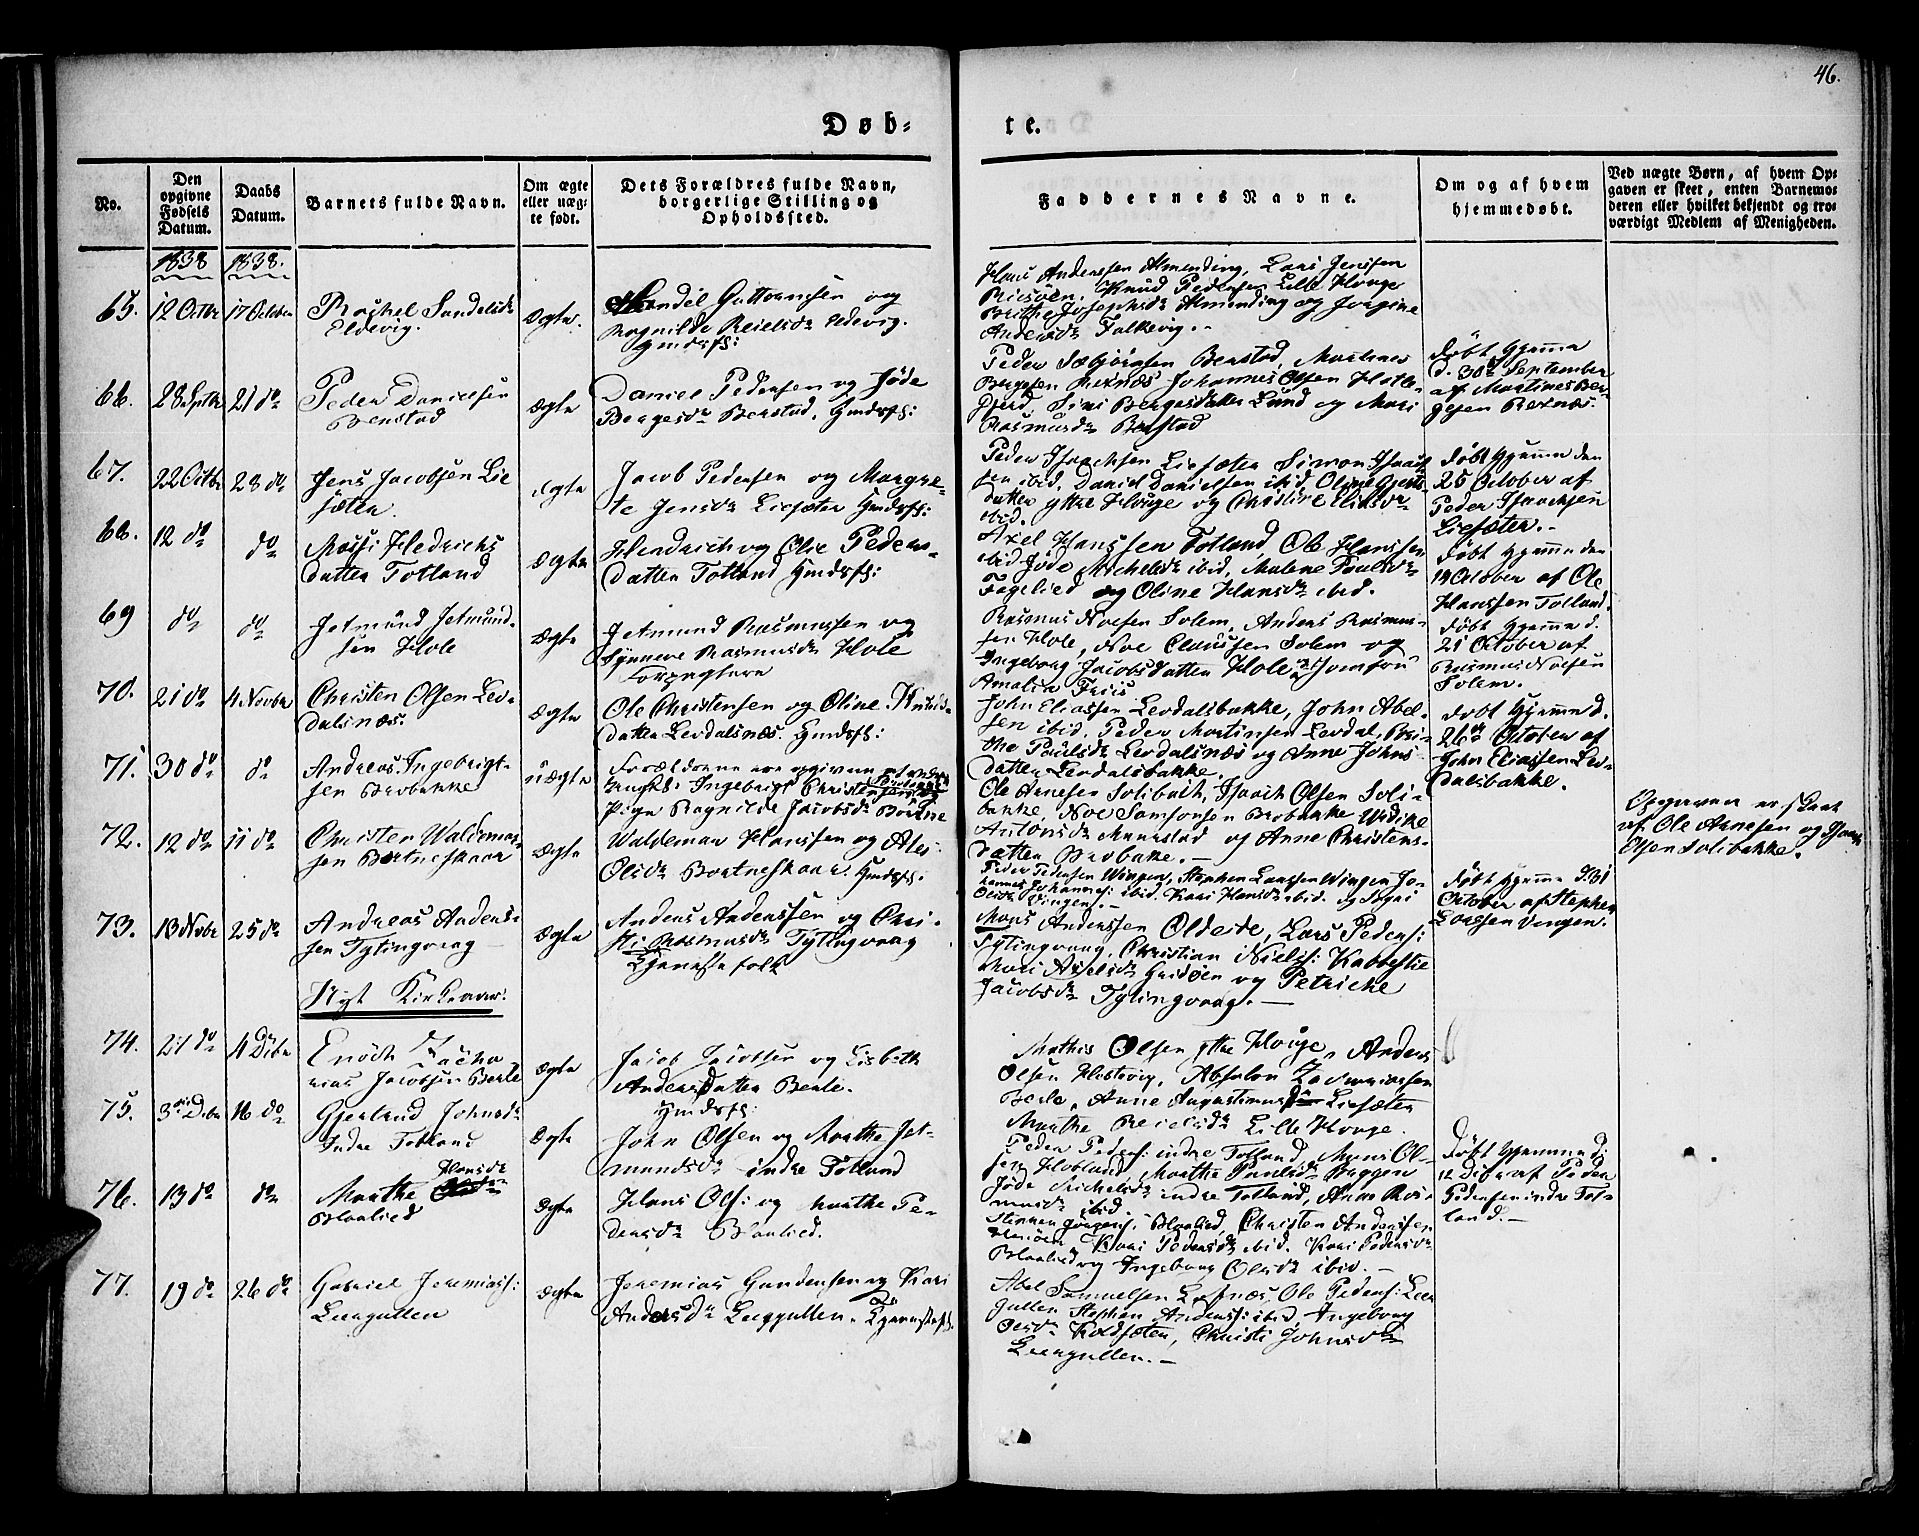 46.
Døb-
te.
No.
Den opgivne Fødsels Datum.
Daabs Datum.
Barnets fulde Navn.
Om ægte eller uægte født.
Dets Forældres fulde Navn, borgerlige Stilling og Opholdssted.
Faddernes Navne.
Om og af hvem hjemmedøbt.
Ved uægte Børn, af hvem Opgaven er skeet, enten Barnemoderen eller hvilket bekjendt og troværdigt Medlem af Menigheden.
1838 1838.
65. 12 Octbr 17 October
Rachel Sandelsdr
Eldevig.
Ægte.
Sandel Guttormsen og
Ragnilde Reielsdr Eldevig.
Gmdsf:
Hans Anderssen Almending, Lars Jenssen
Riesøen, Knud Pedersen Lille Houge
Brithe Josephsdr Almending og Joagine
Andersdr Falkevig.
66. 28 Septbr 21 do
Peder Danielsen
Berstad
Ægte
Daniel Pedersen og Jøde
Børgesdr Berstad, Gmdsf:
Peder Sæbjørnsen Berstad, Martines
Børgesen Rexnæs Johannes Olsen Hatle-
fjord, Siri Børgesdatter Lund og Mari
Rasmusdr Berstad
Døbt hjemme
d. 30de September
af Martines Bør-
gesen Rexnæs.
67. 22 Octbr 28 do
Jens Jacobsen Lie
sætter.
Ægte
Jacob Pedersen og Margre-
te Jensdr Liesæter Gmdsf:
Peder Isachsen Liesæter Simon Isach
sen ibid, Daniel Danielsen ibid, Oline
datter yttre Houge og Christine Eliasdr
ibid.
Døbt hjemme den
25 October af
Peder Isaachsen
Liesæter.
68. 12 do do
Massi Hedrichs
datter Totland
Ægte
Hendrich og Olie Peders-
datter Totland Gmdsf:
Axel Hanssen Totland, Ole Hanssen
ibid Jøde Michelsdr ibid, Malene Paulsdr
Fagelied og Oline Hansdr ibid.
Døbt hjemme den
14 October af Ole
Hanssen Totland.
69 do do
Jetmund Jetmund-
sen Hole
Ægte
Jetmund Rasmussen og
Synneve Rasmusdr Hole
Forpagtere
Rasmus Noesen Solem, Anders Rasmus-
sen Hole, Noe Claussen Solem og
Ingeborg Jacobsdatter Hole og Jomfru
Amalia Friis
Døbt hjemme d.
21 October af
Rasmus Noesen
Solem.
70. 21 do 4 Novbr
Christen Olsen Lev-
dalsnæs.
Ægte
Ole Christensen og Oline Knuds-
datter Levdalsnæs. Gmdsf:
John Eliassen Levdalsbakke, John Abel-
sen ibid. Peder Mortinsen Levdal, Bri-
the Paulsdr Levdalsnæs og Anne Johns
datter Levdalsbakke.
Døbt hjemme d.
26de October af
John Eliassen Lev-
dalsbakke.
71. 30 do do
Andreas Ingebrigt-
sen Brobakke
Uægte
Forældrene ere opgivne at være
Ingebrigt Christensen
Pige Ragnilde Jacobsdr
Ole Arnesen Solibakk, Isaach Olsen Soli-
bakke, Noe Samsonsen Brobakke Wedike
Antonsdr Maurstad og Anne Christens-
datter Brobakke.
Opgaven er skeet
af Ole Arnesen og Isaac
Olsen Solibakke.
72. 12 do 11 do
Christen Waldemar-
sen Bortneskaar
Ægte
Waldemar Hanssen og Ales
Olsdr Bortneskaar. Gmdsf:
Peder Pedersen Wingen, Stephen Larssen Wingen Jo-
hannes Johannes: ibid. Kari Hansdr ibid. og Segni
Olsdr Vingen.
Døbt hjemme d. 31
October af Stephen
Larssen Vingen.
73. 13 Novbr 25 do
Andreas Anders-
sen Tytingvaag
Ægte
Anders Anderssen og Chri-
sti Rasmusdr Tytingvaag
Tjenestefolk
Mons Anderssen Oldeide, Lars Peders:
Tytingvaag, Christian Niels: Kabbestie
Mari Axelsdr Gridøen og Petricke
Jacobsdr Tytingvaag.
Nyt Kirkeaar.
74. 27 do 4 Dcbr
Enoch Zacha
rias Jacobsen Berle
Ægte
Jacob Jacobsen og Lisbeth
Andersdatter Berle.
Gmdsf:
Mathis Olsen ytre Houge, Anders
Olsen Hostvig, Absalon Zachariassen
Berle, Anne Augustinusdr Liesæter
Marthe Reielsdr Lille Houge.
75. 3die Dcbr 16 do
Gjertrud Johnsdr
Indre Totland
Ægte
John Olsen og Marthe Jet-
mundsdr indre Totland
Peder Peders: indre Totland, Mons Ol-
sen Hobland, Marthe Paulsdr Vaggen
Jøde Michelsdr indre Totland, Anne Ras-
musdr ibid.
Døbt hjemme d.
12 Dcbr af Peder
Pedersen indre Tot-
land.
76. 13 do do
Marthe Hansdr
Blaalied
Ægte
Hans Ols: og Marthe Pe-
dersdr Blaalied.
Blaalied, Christen Anderssen
Kari Pedersdr ibid. Kari Pedersdr
Blaalied og Ingeborg Olsdr ibid.
77. 19 do 26 do
Gabriel Jeremias:
Leergullen
Ægte
Jeremias Gundersen og Kari
Andersdr Leergullen. Tjenstef.
Abel Samuelsen Lefnæs Ole Peders: Leer
gullen Stephen Anderss: ibid, Ingeborg
Olsdr Koldsæten, Christi Johnsdr
Leergullen.